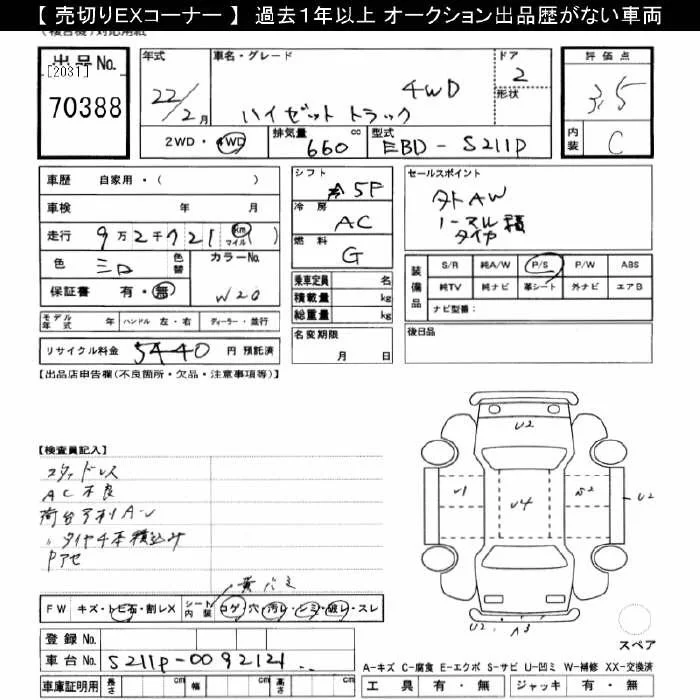 【 売切りEXコーナー 】 過去１年以上 オークション出品歴がない車両
出品No.
[2031]
70388
年式
22/2月
車名・グレード
4WD
ハイゼット トラック
ドア
2
形状
評価点
3.5
内装
C
2WD・4WD
排気量
660
cc
型式
EBD - S211P
車歴 自家用・( )
車検 年 月
走行 9万2千721 (km マイル)
色 シロ
色替
カラーNo.
W20
保証書 有・無
モデル年式 年 ハンドル 左・右 ディーラー・並行
リサイクル料金 5440 円 預託済
シフト
5F
冷房
AC
燃料
G
乗車定員 名
積載量 kg
総重量 kg
名変期限
月 日
セールスポイント
タトAW
ノーマル積
タイヤ
装備品
S/R 純A/W P/S P/W ABS
純TV 純ナビ 革シート 外ナビ エアB
ナビ型番:
後日品
【出品店申告欄(不良箇所・欠品・注意事項等)】
【検査員記入】
スタッドレス
AC不良
荷台
タイヤ4本積込み
Pアセ
FW キズ・トビ石・割レX
シート内装
コゲ・穴・汚レ・シミ・破レ・スレ
登録No.
車台No. S211P-0092121
車庫証明用 長さ cm 幅 cm 高さ cm
U2
U1
U4
U2
U2
スペア
A-キズ C-腐食 E-エクボ S-サビ U-凹ミ W-補修 XX-交換済
工具 有・無 ジャッキ 有・無